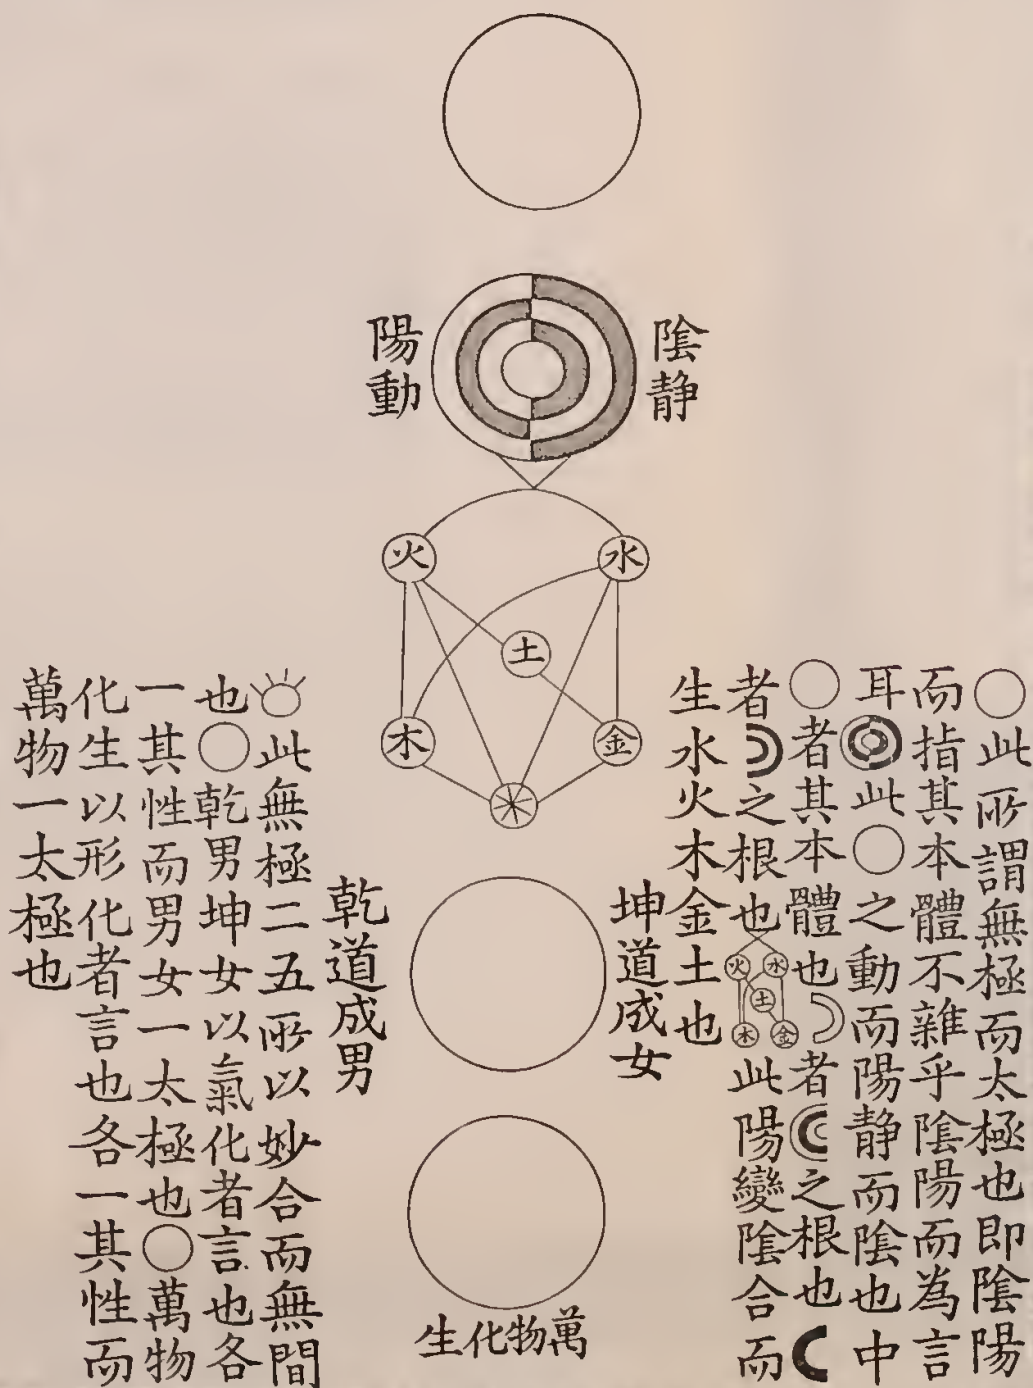 陰静
陽動
水
火
土
金
木
坤道成女
乾道成男
萬物化生
○此所謂無極而太極也即陰陽
而指其本體不雜乎陰陽而為言
耳◎此○之動而陽静而陰也中
○者其本體也☽者☾之根也☾
者☽之根也水火土金木此陽變陰合而
生水火木金土也
此無極二五所以妙合而無間
也○乾男坤女以氣化者言也各
一其性而男女一太極也○萬物
化生以形化者言也各一其性而
萬物一太極也